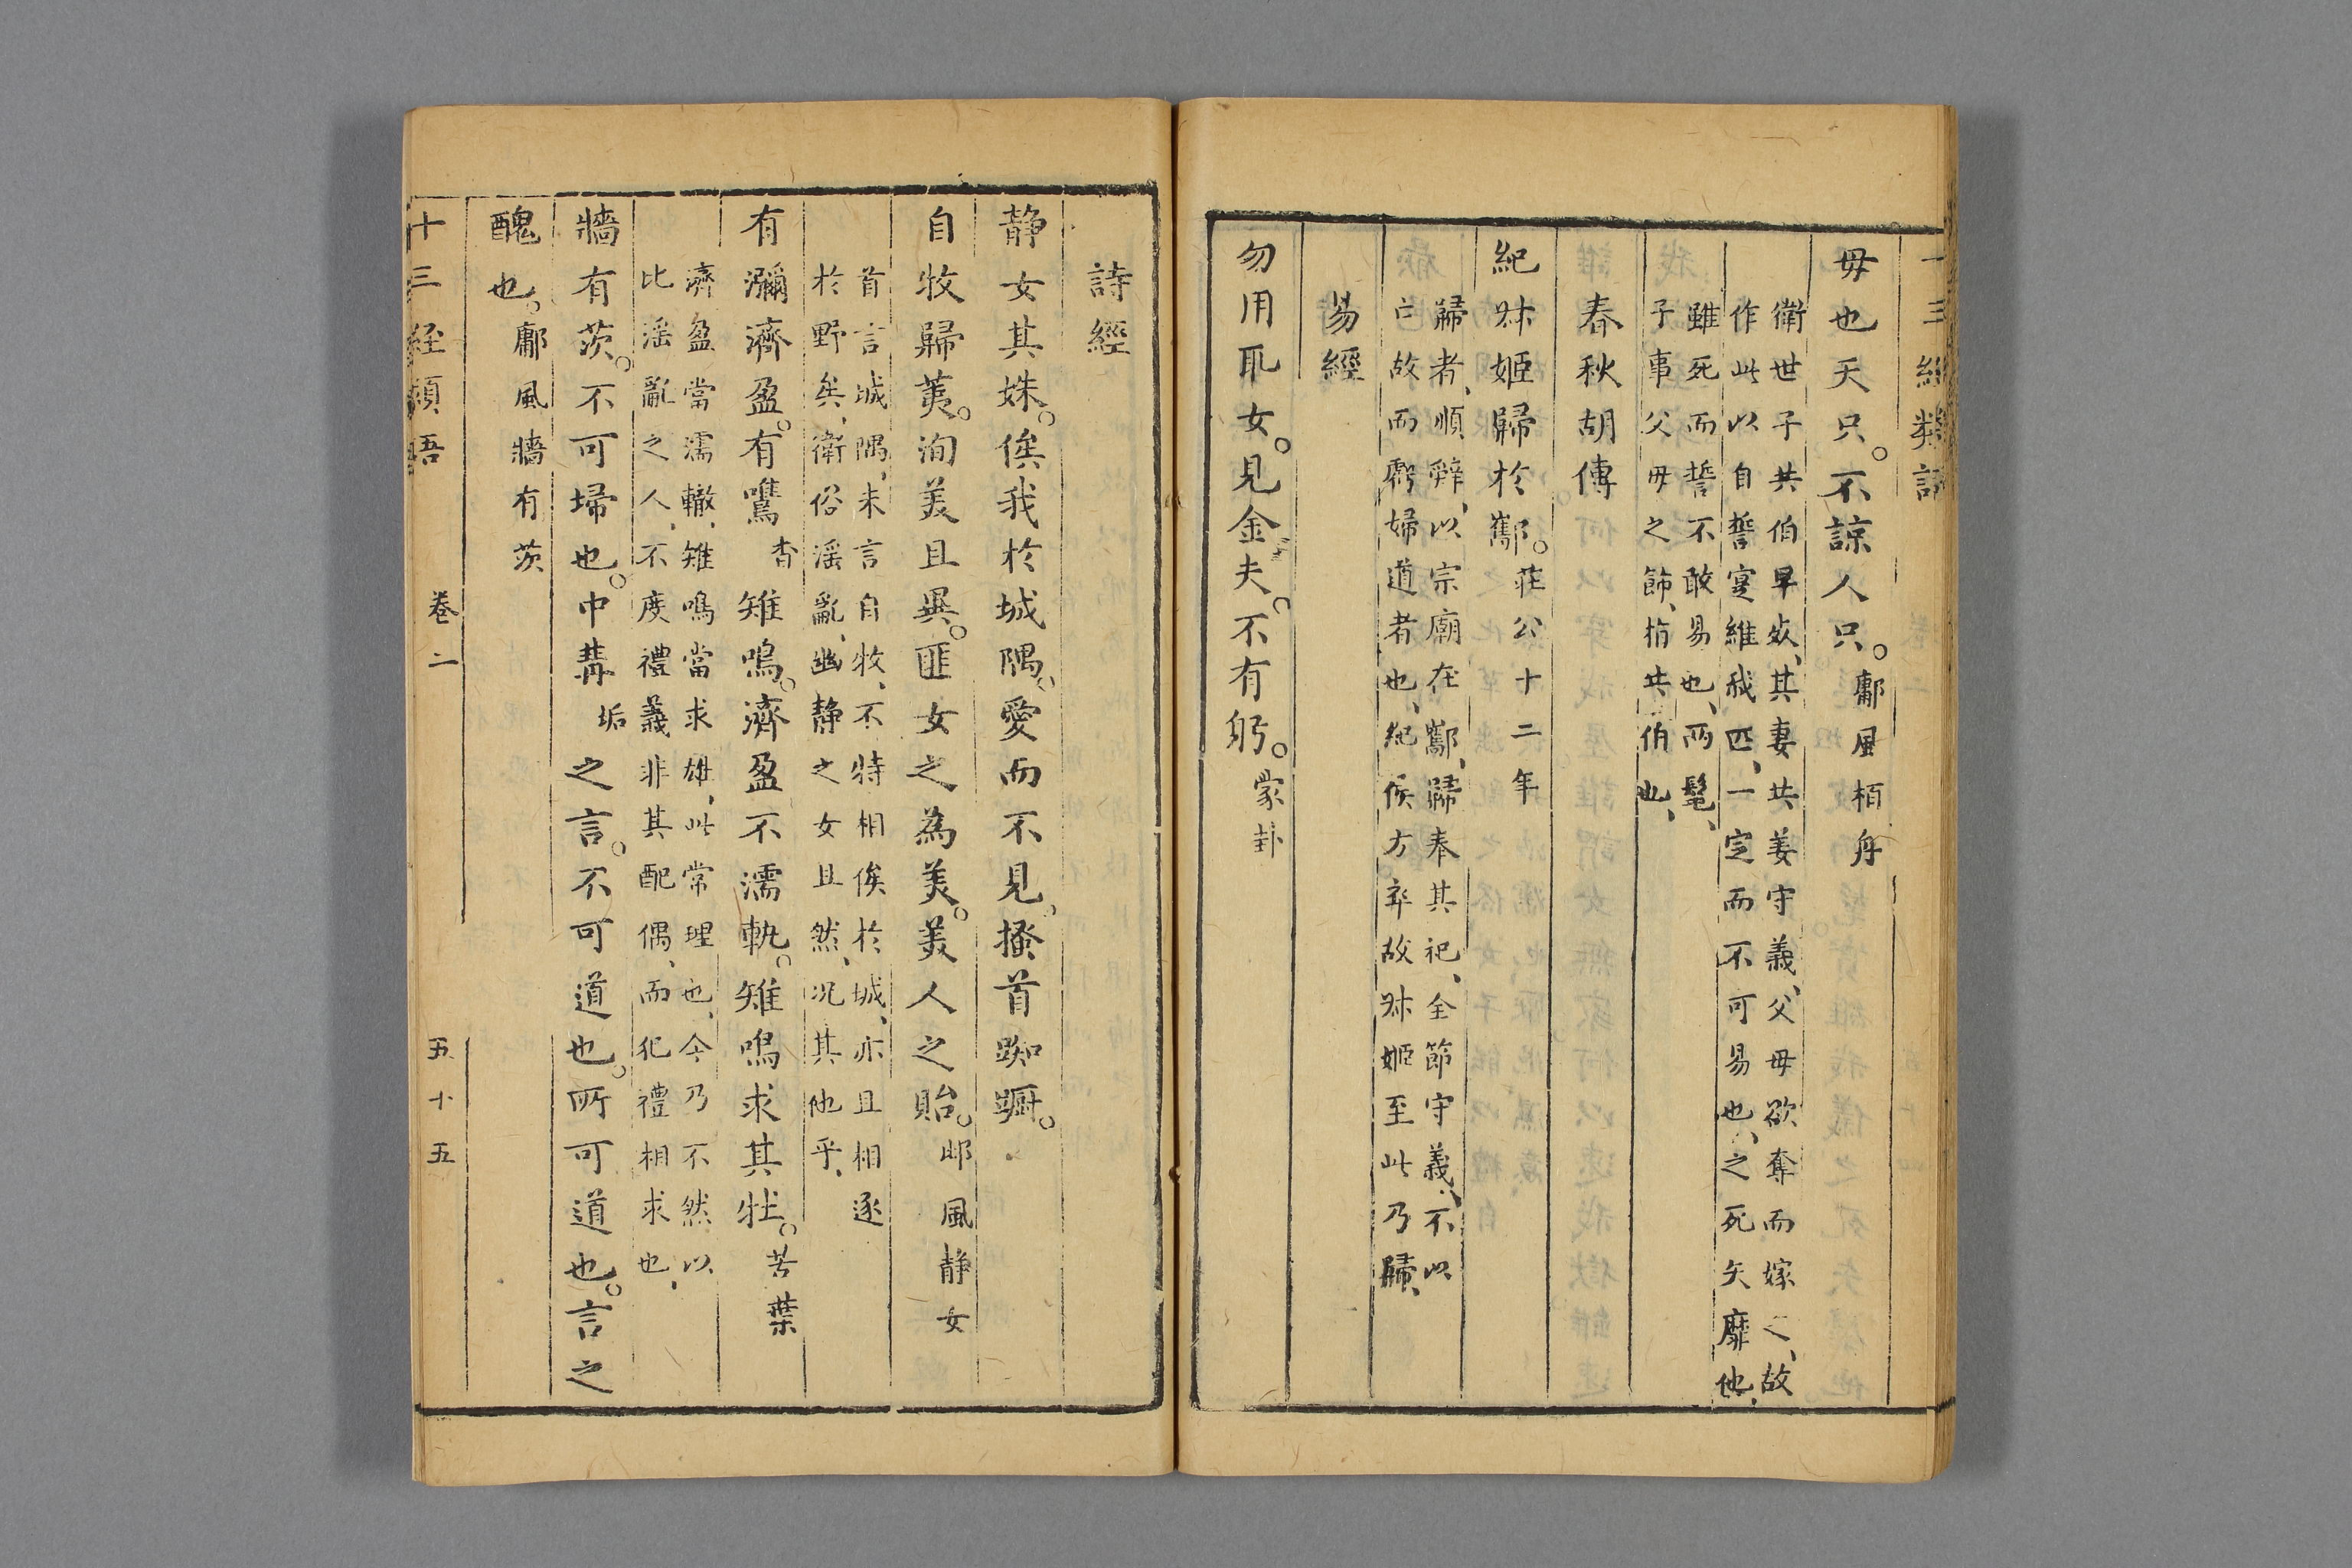 十三經類語
毋也天只。不諒人只。鄘風栢舟
衛世子共伯早死、其妻共姜守義、父毋欲奪而嫁之、故
作此以自誓寔維我匹、一定而不可易也、之死矢靡他、
雖死而誓不敢易也、兩髦、
子事父毋之飾、指共伯也、
春秋胡傳
紀叔姬歸於酅。莊公十二年
歸者、順辭、以宗廟在酅、歸奉其祀、全節守義、不以
亡故而虧婦道者也、紀侯方卒故叔姬至此乃歸、
易經
勿用取女。見金夫。不有躬。蒙卦
詩經
静女其姝。俟我於城隅。愛而不見。搔首踟蹰。
自牧歸荑。洵美且異。匪女之為美。美人之貽。邶風静女
首言城隅、末言自牧、不特相俟於城、亦且相逐
於野矣、衛俗淫亂、幽静之女且然、况其他乎、
有瀰濟盈。有鷕杳雉鳴。濟盈不濡軌。雉鳴求其牡。苦葉
濟盈當濡轍、雉鳴當求雄、此常理也、今乃不然以
比淫亂之人、不度禮義非其配偶、而犯禮相求也、
牆有茨。不可埽也。中冓垢之言。不可道也。所可道也。言之
醜也。鄘風牆有茨
十三經類語 卷二 五十五